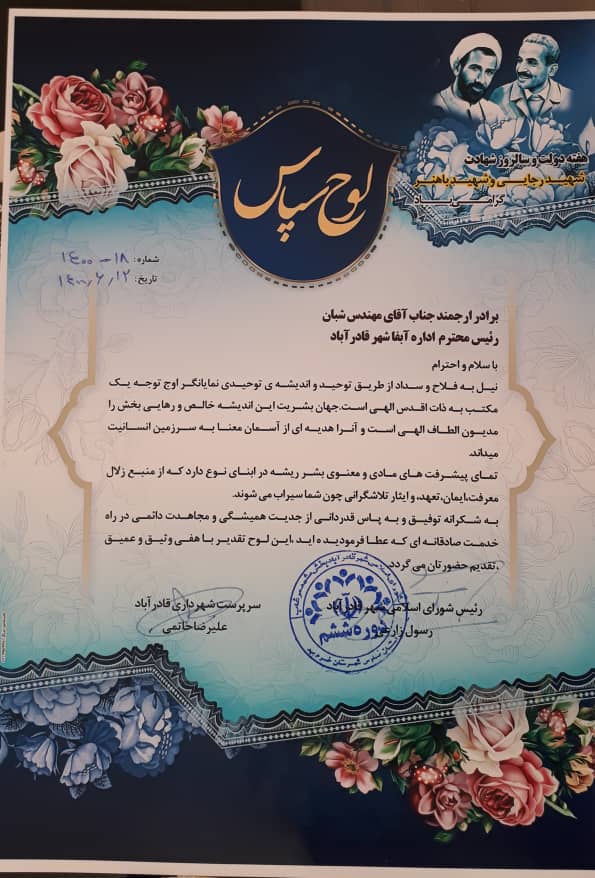 هفته دولت و سالروز شهادت
شهید رجایی و شهید باهنر
گرامی باد
لوح سپاس
شماره: ۱۸-۱۴۰۰
تاریخ: ۱۴۰۰/۶/۱۲
برادر ارجمند جناب آقای مهندس شبان
رئیس محترم اداره آبفا شهر قادرآباد
با سلام و احترام
نیل به فلاح و سداد از طریق توحید و اندیشه ی توحیدی نمایانگر اوج توجه یک
مکتب به ذات اقدس الهی است.جهان بشریت این اندیشه خالص و رهایی بخش را
مدیون الطاف الهی است و آنرا هدیه ای از آسمان معنا به سرزمین انسانیت
میداند.
تمای پیشرفت های مادی و معنوی بشر ریشه در ابنای نوع دارد که از منبع زلال
معرفت،ایمان،تعهد، و ایثار تلاشگرانی چون شما سیراب می شوند.
به شکرانه توفیق و به پاس قدردانی از جدیت همیشگی و مجاهدت دائمی در راه
خدمت صادقانه ای که عطا فرمودیده اید ،این لوح تقدیر با هفی وثیق و عمیق
،تقدیم حضورتان می گردد.
رئیس شورای اسلامی شهر قادرآباد
رسول زارعی
سرپرست شهرداری قادرآباد
علیرضا حاتمی
دوره ششم